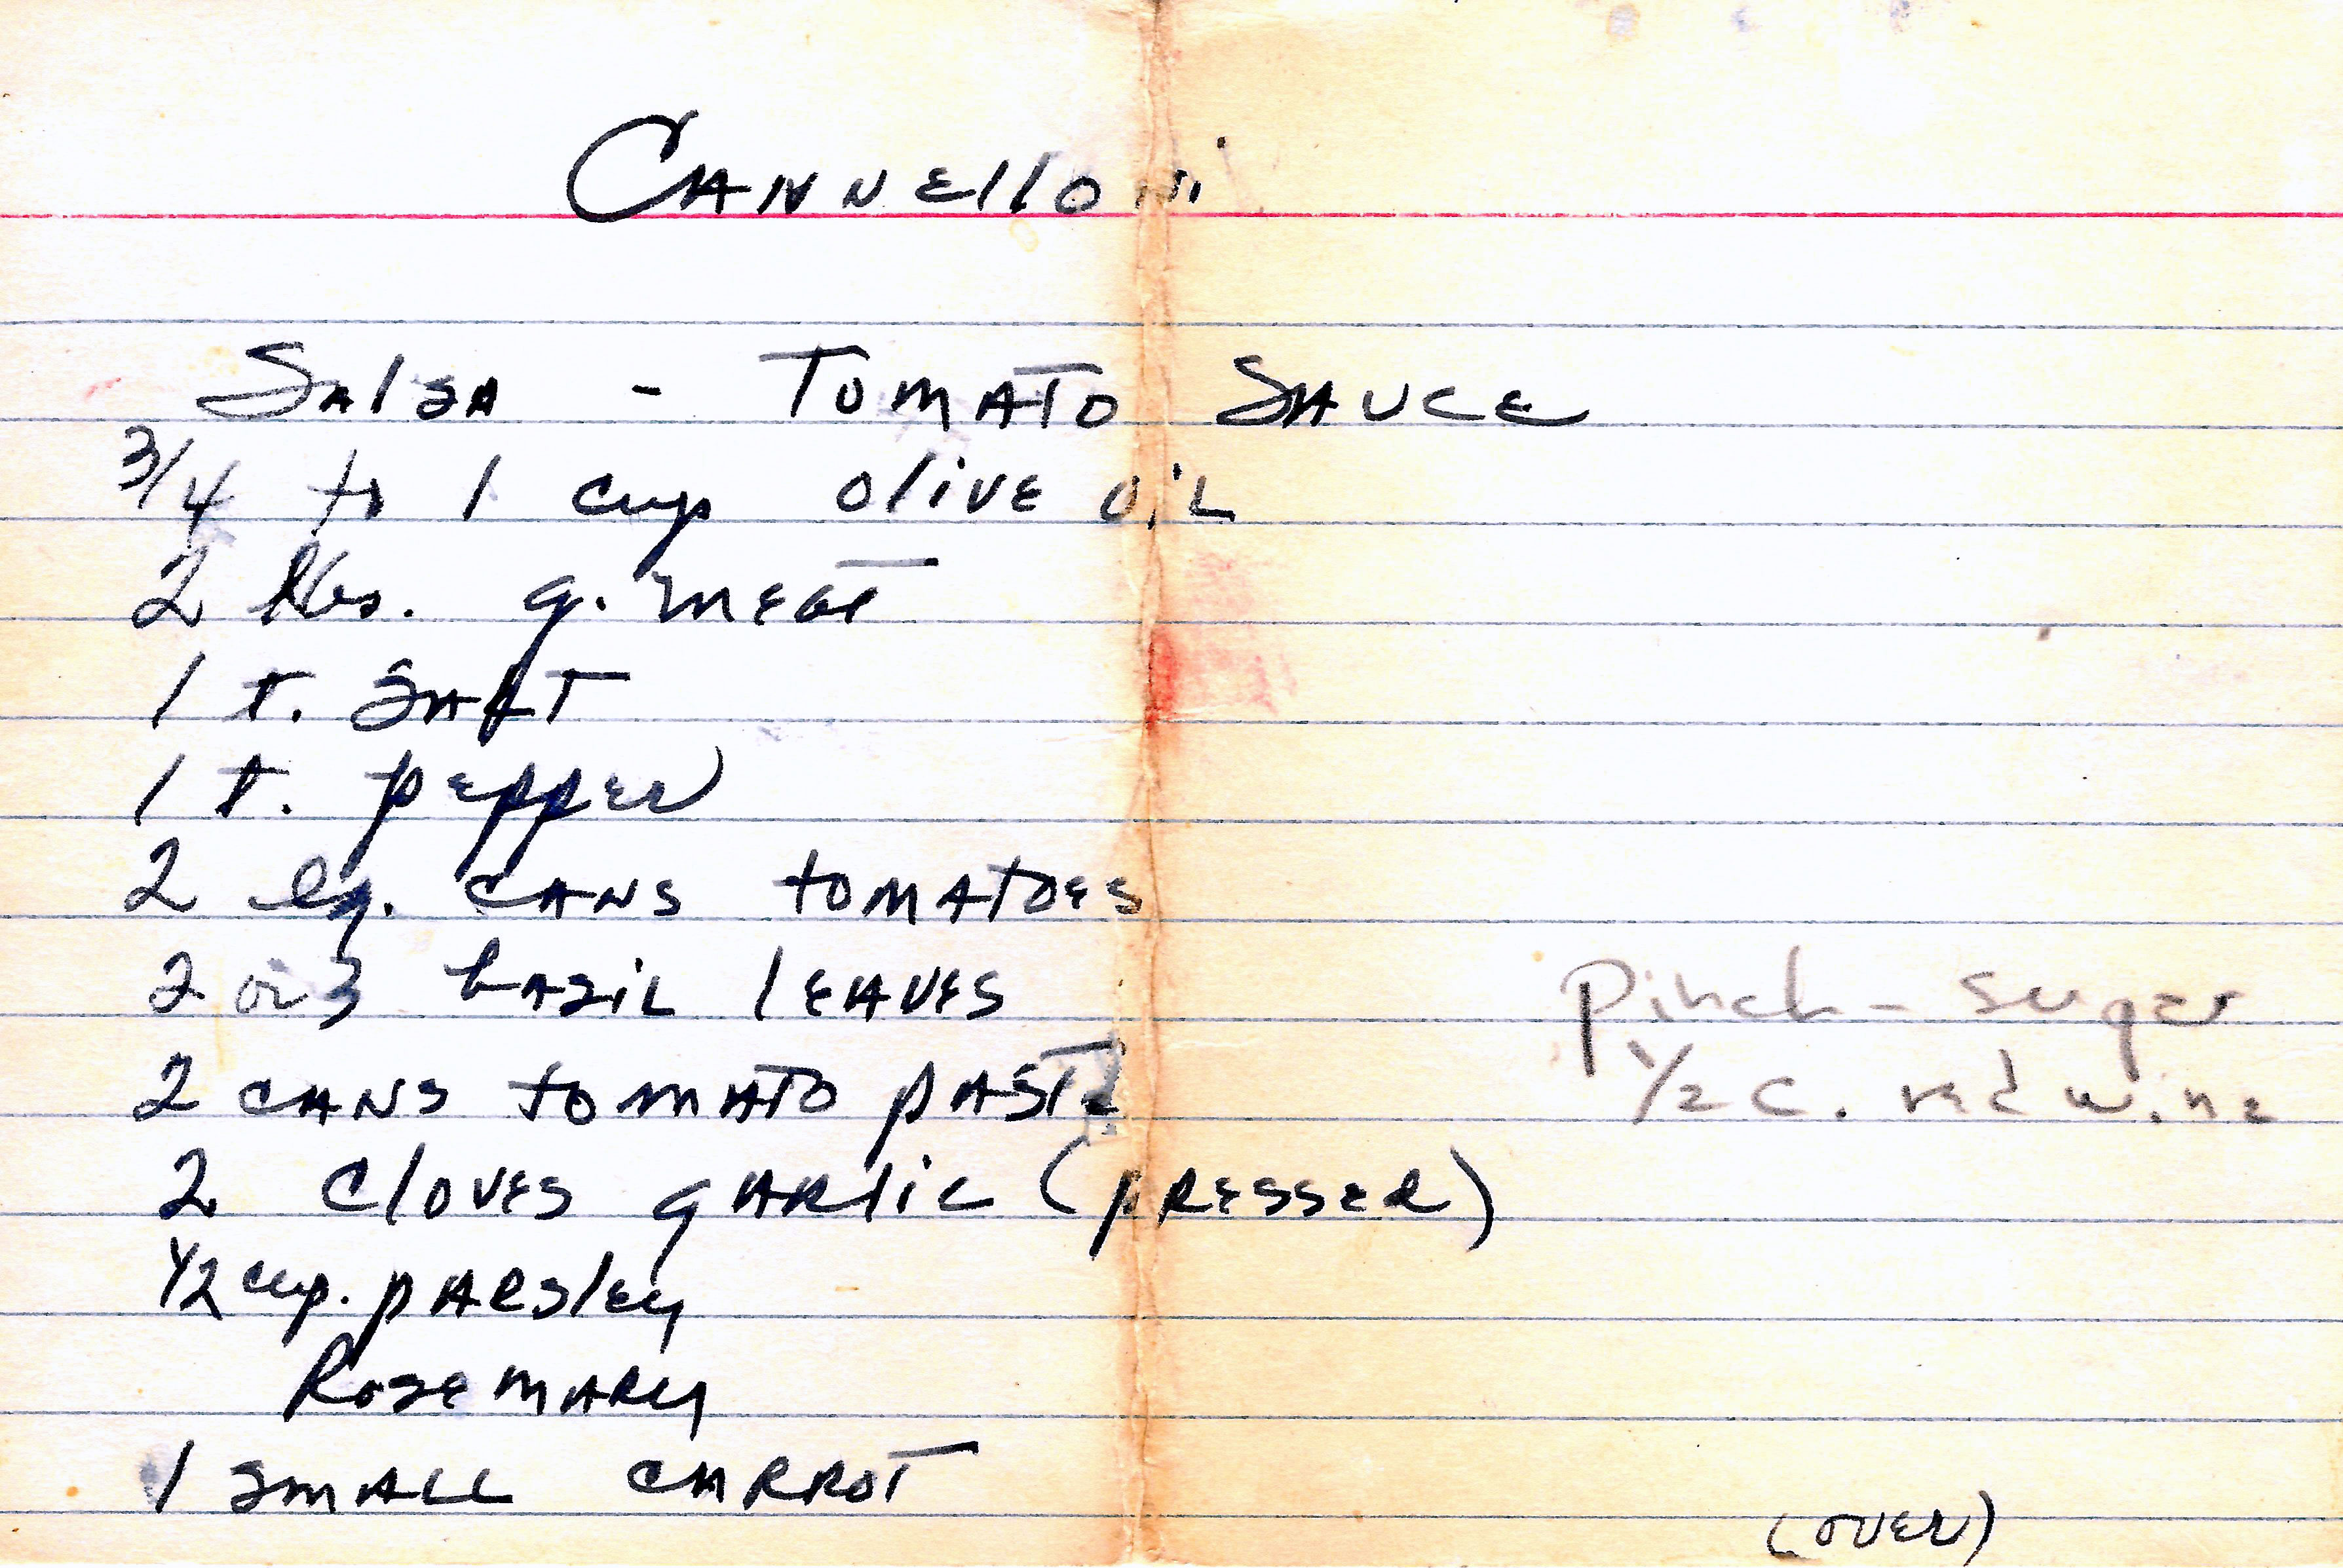 Cannelloni
Salsa - Tomato Sauce
3/4 to 1 cup olive oil
2 lbs. g. meat
1 t. salt
1 t. pepper
2 lg. cans tomatoes
2 or 3 basil leaves
2 cans tomato paste
2 cloves garlic (presser)
1/2 cup. parsley
Rosemary
1 small carrot
Pinch - sugar
1/2 c. red wine
(over)